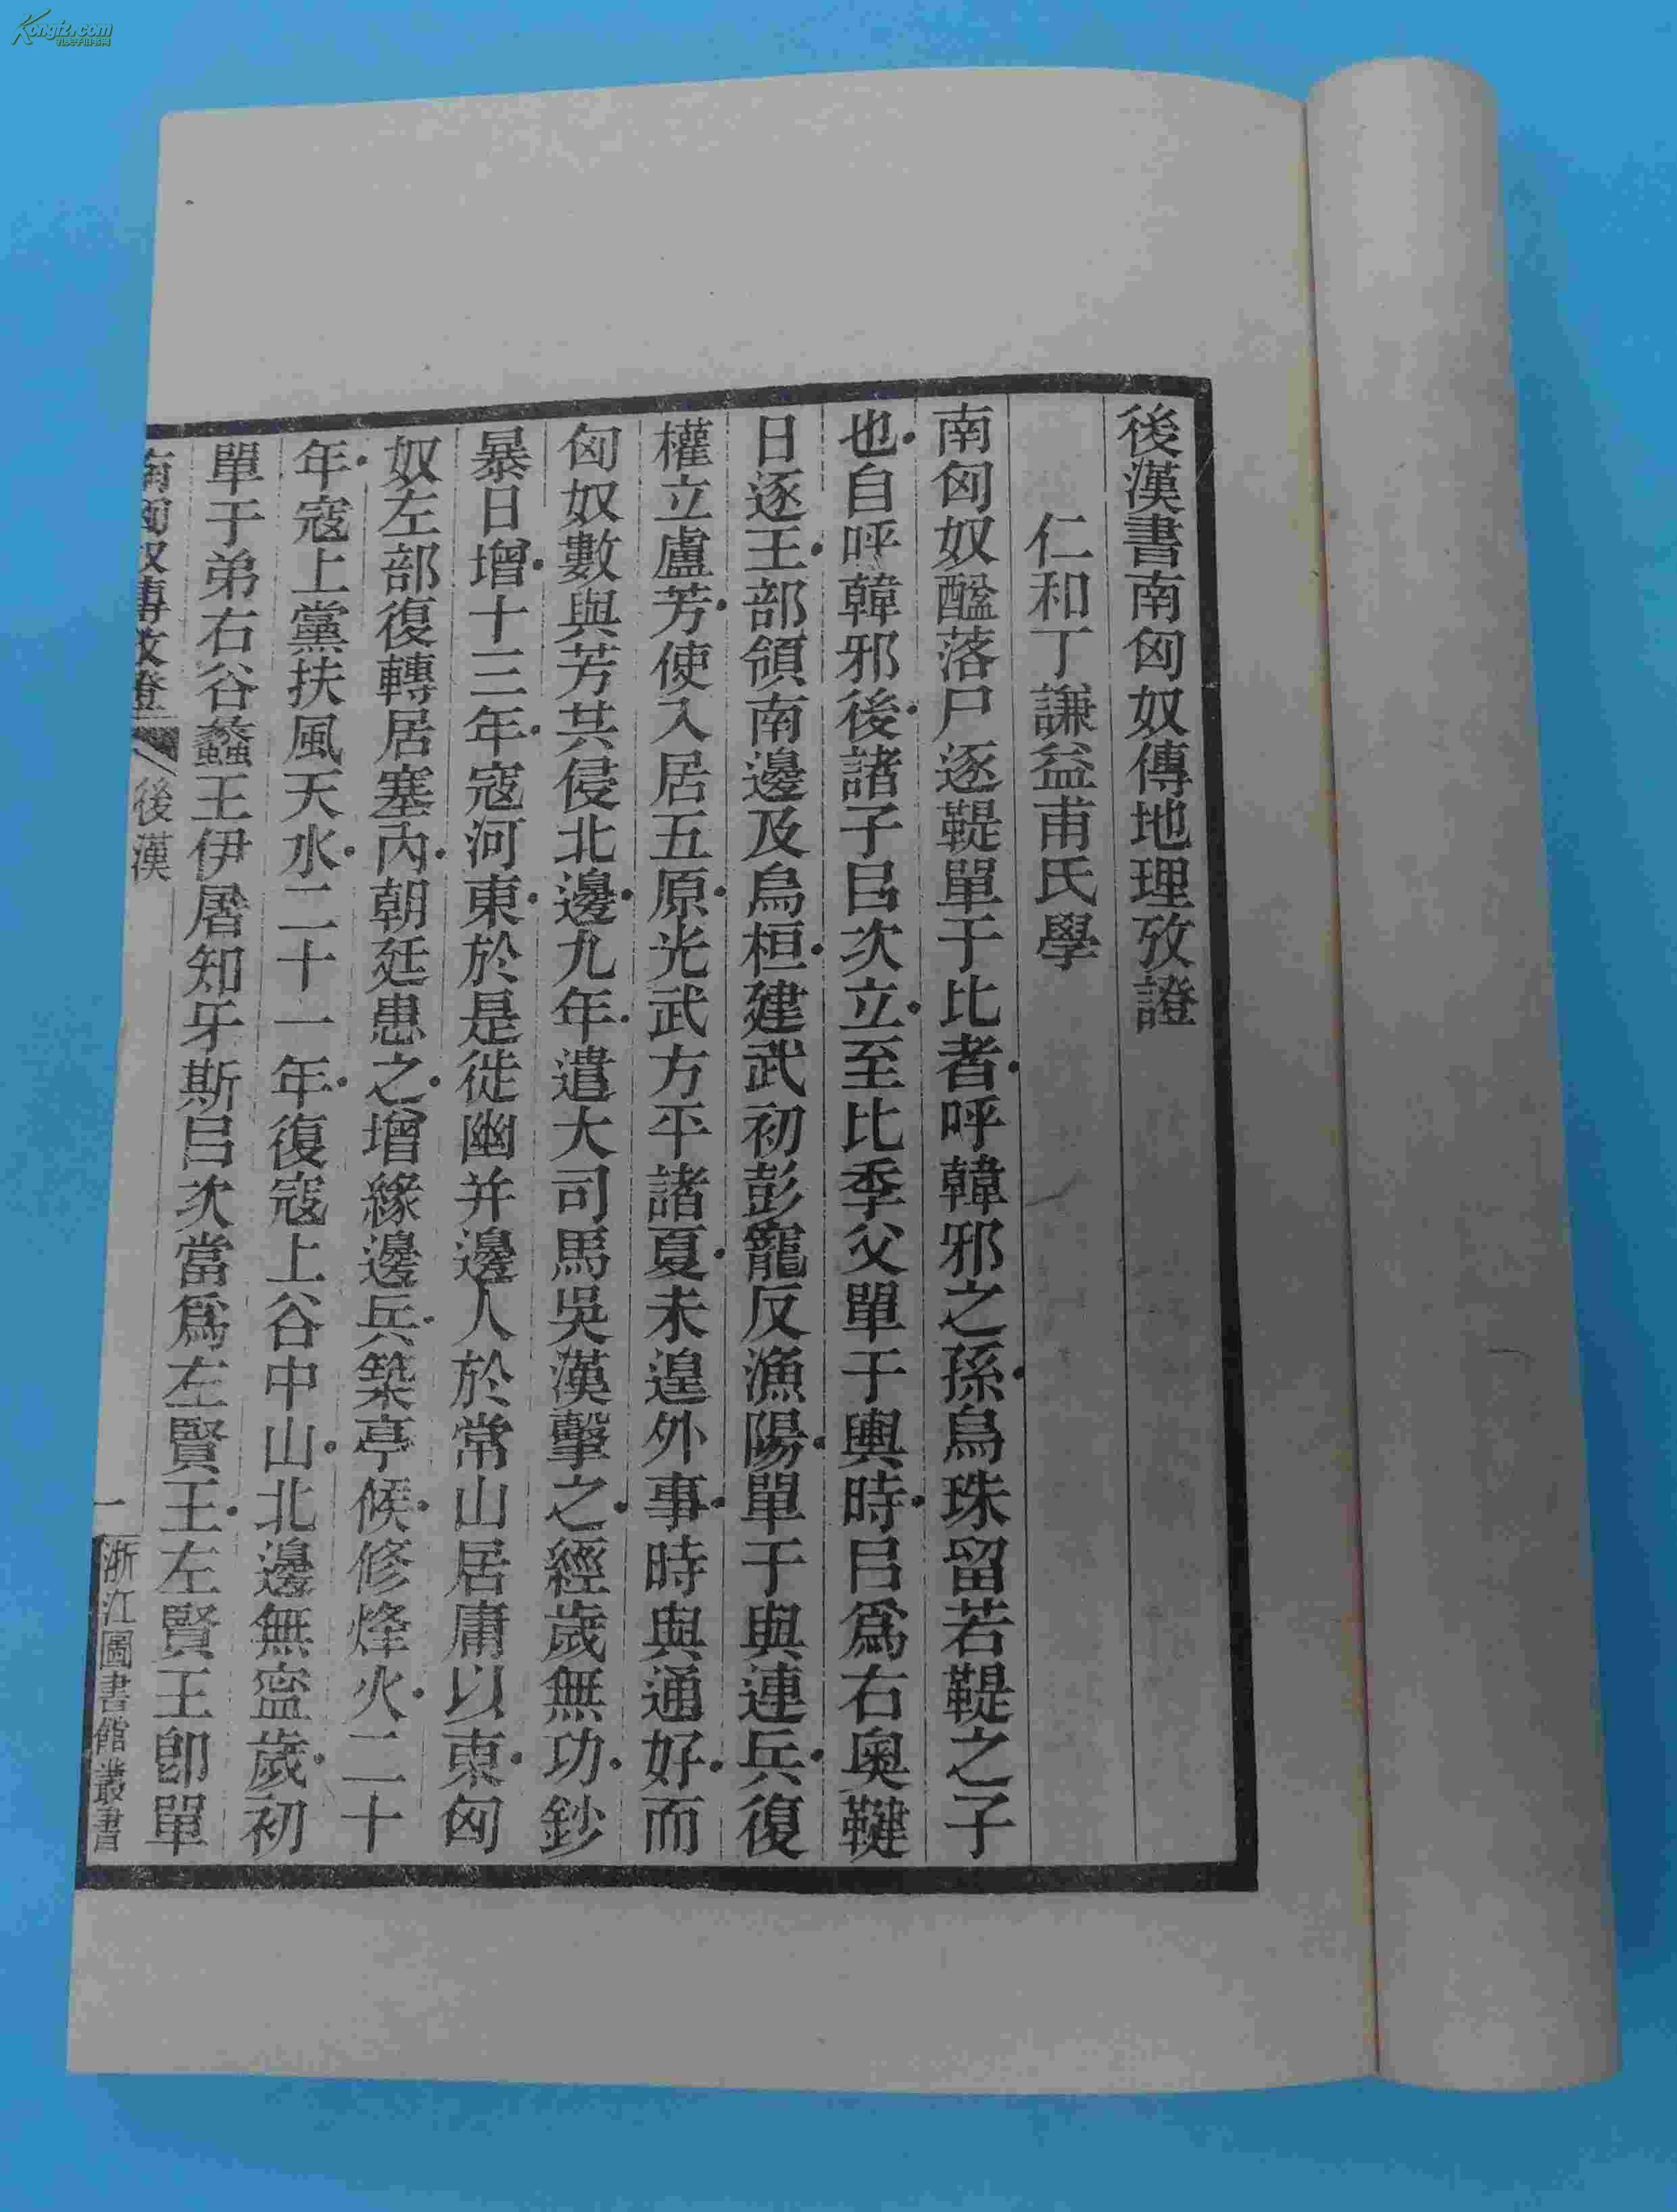 後漢書南匈奴傳地理攷證
仁和丁謙益甫氏學
南匈奴醯落尸逐鞮單于比者呼韓邪之孫烏珠留若鞮之子
也自呼韓邪後諸子㠯次立至比季父單于輿時㠯爲右奧鞬
日逐王部領南邊及烏桓建武初彭寵反漁陽單于與連兵復
權立盧芳使入居五原光武方平諸夏未遑外事時與通好而
匈奴數與芳共侵北邊九年遣大司馬吳漢擊之經歲無功鈔
暴日增十三年寇河東於是徙幽并邊人於常山居庸以東匈
奴左部復轉居塞內朝廷患之增緣邊兵築亭候修烽火二十
年寇上黨扶風天水二十一年復寇上谷中山北邊無寍歲初
單于弟右谷蠡王伊屠知牙斯㠯次當爲左賢王左賢王卽單
南匈奴傳攷證 後漢 一 浙江圖書館叢書
Kongfz.com
孔夫子旧书网